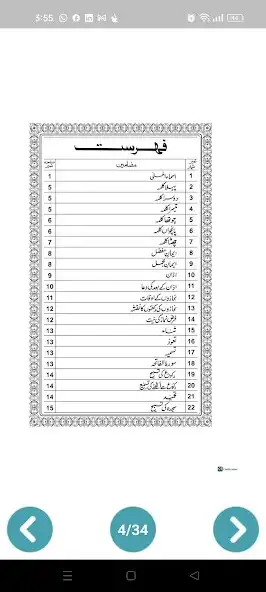 5:55
فہرست
نمبر شمار مضامین صفحہ نمبر
1 اسماء الحسنیٰ 1
2 پہلا کلمہ 5
3 دوسرا کلمہ 5
4 تیسرا کلمہ 5
5 چوتھا کلمہ 6
6 پانچواں کلمہ 6
7 چھٹا کلمہ 7
8 ایمان مفصل 8
9 ایمان مجمل 8
10 اذان 9
11 اذان کے بعد کی دعا 10
12 نمازوں کے اوقات 11
13 نمازوں کی رکعتوں کا نقشہ 12
14 فرض نماز کی نیت 12
15 ثناء 13
16 تعوذ 13
17 تسمیہ 13
18 سورۃ الفاتحہ 13
19 رکوع کی تسبیح 14
20 رکوع سے اٹھنے کی تسبیح 14
21 14
22 سجدہ کی تسبیح 15
4/34